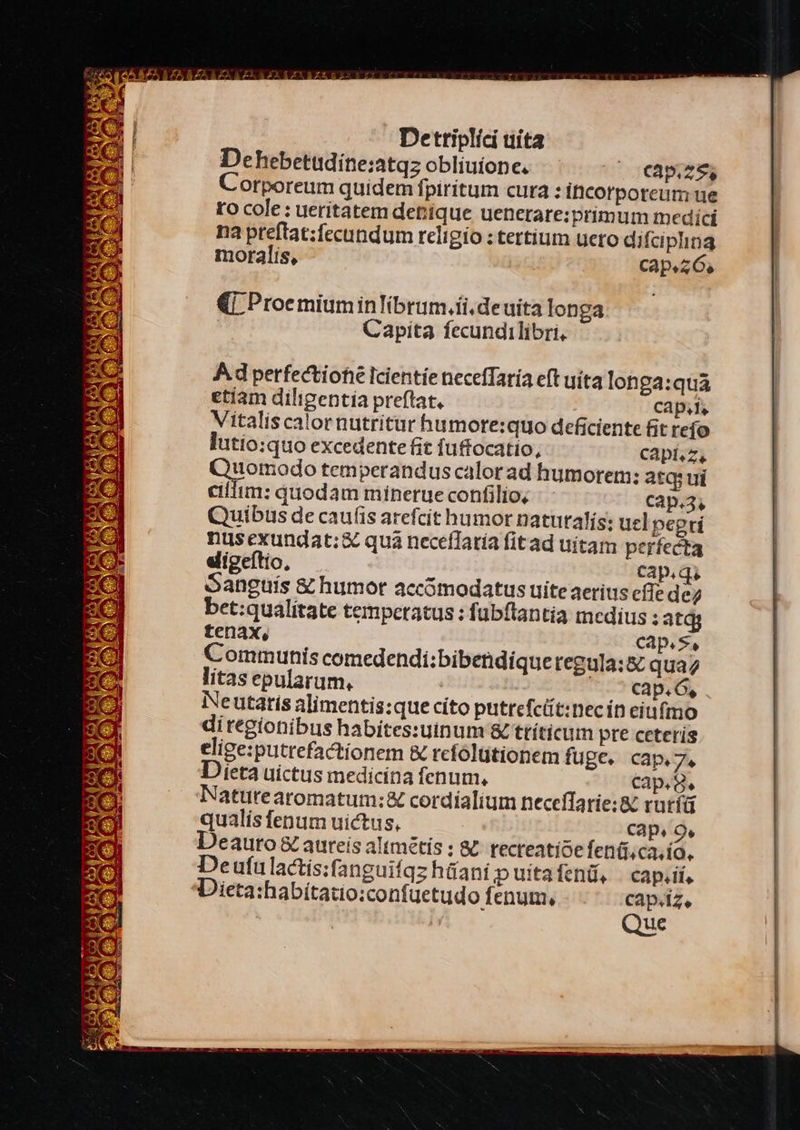 Detriplici uita
Dehebetudine:atqʒ obliuione. cap.25.
Corporeum quidem ſpiritum cura : incorporeum ue
ro cole : ueritatem denique uenerare:primum medici
na preſtat:ſecundum religio : tertium uero diſciplina
moralis. cap.26.
⁋ Proemium in librum.ii.de uita longa
Capita ſecundi libri.
Ad perfectionē ſcientie neceſſaria eſt uita longa:quā
etiam diligentia preſtat. cap.1.
Vitalis calor nutritur humore:quo deficiente fit reſo
lutio:quo excedente fit ſuffocatio. capi.2.
Quomodo temperandus calor ad humorem: atqꝫ ui
ciſſim: quodam minerue conſilio. cap.3.
Quibus de cauſis areſcit humor naturalis: uel pegri
nus exundat:& quā neceſſaria ſit ad uitam perfecta
digeſtio. cap.4.
Sanguis & humor accōmodatus uite aerius eſſe de⸗
bet:qualitate temperatus : ſubſtantia medius : atqꝫ
tenax. cap.5.
Communis comedendi:bibendique regula:& qua⸗
litas epularum. cap.6.
Ne utaris alimentis:que cito putreſcūt:nec in eiuſmo
di regionibus habites:uinum & triticum pre ceteris
elige:putrefactionem & reſolutionem fuge. cap.7.
Dieta uictus medicina ſenum. cap.8.
Nature aromatum:& cordialium neceſſarie:& rurſū
qualis ſenum uictus. cap. 9.
De auro & aureis alimētis : & recreatiōe ſenū.ca.io.
De uſu lactis:ſanguiſqʒ hūani ꝓ uita ſenū. cap.ii.
Dieta:habitatio:conſuetudo ſenum. cap.i2.
Que